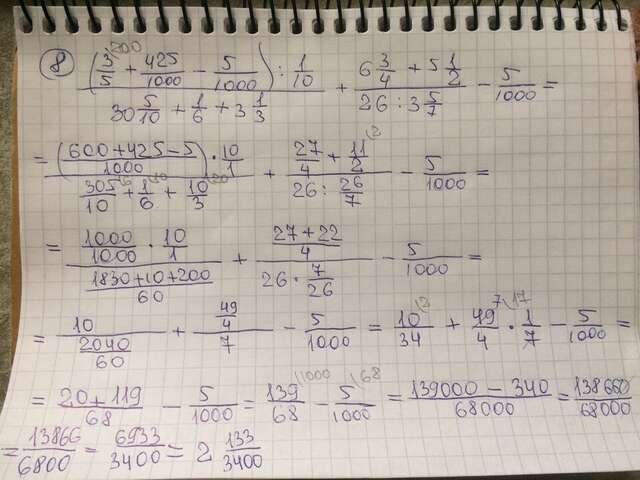 8 ((3/5 + 425/1000 − 5/1000) : 1/10) / (30 5/10 + 1/6 + 3 1/3) + (6 3/4 + 5 1/2) / (26 : 3 5/7) − 5/1000 =
= (((600 + 425 − 5)/1000) · 10/1) / (305/10 + 1/6 + 10/3) + (27/4 + 11/2) / (26 : 26/7) − 5/1000 =
= (1000/1000 · 10/1) / ((1830 + 10 + 200)/60) + ((27 + 22)/4) / (26 · 7/26) − 5/1000 =
= 10 / (2040/60) + (49/4) / 7 − 5/1000 = 10/34 + 49/4 · 1/7 − 5/1000 =
= (20 + 119)/68 − 5/1000 = 139/68 − 5/1000 = (139000 − 340)/68000 = 138660/68000
= 13866/6800 = 6933/3400 = 2 133/3400